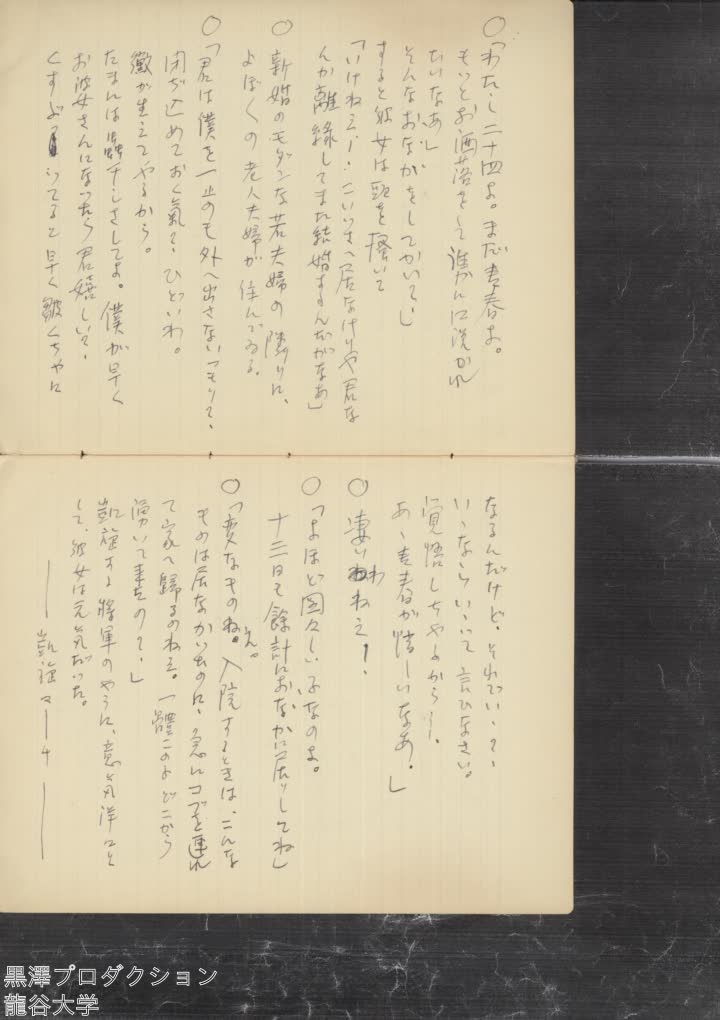 ○「わたし二十四よ。まだ青春よ。
もっとお洒落をして誰かに説かれ
たいなあ」
そんなおなかをしてかいて、」
すると彼女は頭を掻いて
「いけねえ!・こいつさへ居なけりや君な
んか離縁してまた結婚するんだがなあ」
○ 新婚のモダンな若夫婦の隣りに、
よぼくの老人夫婦が住んでゐる。
○「君は僕を一歩も外へ出さないつもりて、
閉ぢ込めておく氣て、ひどいわ。
黴が生えてやるから。
たまには蟲干しさしてよ。僕が早く
お婆さんになったら君嬉しいて、
くすぶってると早く皺くちやに
なるんだけど、それでいゝて、
いゝならいゝつて言ひなさい。
覚悟しちやふから…。
あゝ青春が惜しいなあ。」
○ 凄いわねえ!・
○「よほど図々しい子なのよ。
十三日も餘計におなかに居りしてね」
○「変なものねえ。入院するときは、こんな
ものは居なかつたのに、急にコブを連れ
て家へ歸るのねえ。一體このよどこから
湧いて来たのて、」
凱旋する將軍のやうに、意気洋々と
して、彼女は元気だった。
—— 凱旋マーチ ——
黒澤プロダクション
龍谷大学